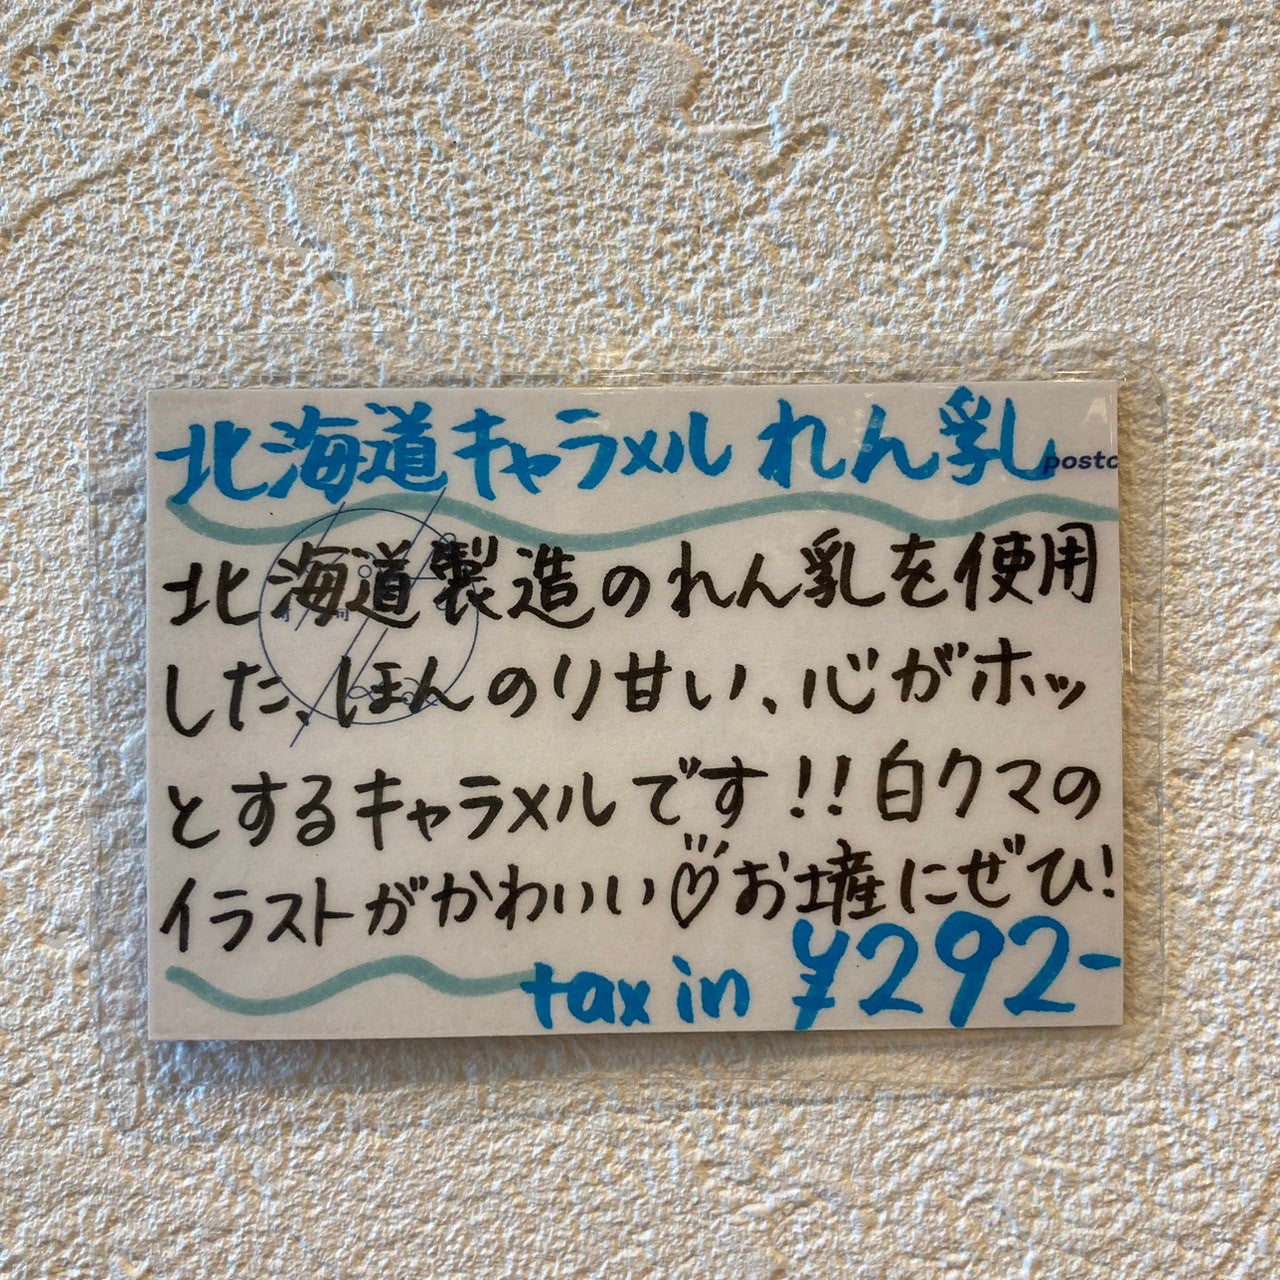 北海道キャラメル れん乳
postc
北海道製造のれん乳を使用
した、ほんのり甘い、心がホッ
とするキャラメルです!!白クマの
イラストがかわいい♡お土産にぜひ!
tax in ¥292-